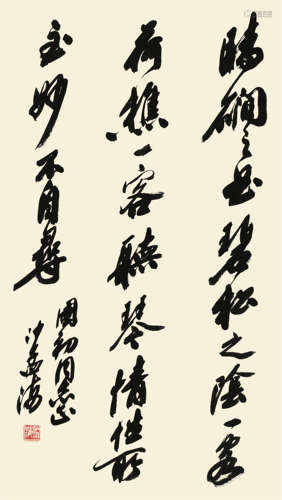 晴磵之曲碧松之陰一客
荷樵一客聽琴情性所
至妙不自尋
國初同志正
沙孟海